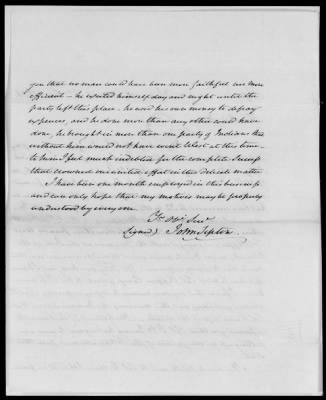 you that no man could have been more faithful nor more
efficient – he exerted himself day and night until the
party left this place. he used his own money to defray
expences, and he done more than any other could have
done, he brought in more than one party of Indians that
without him would not have went West at this time
to him I feel much indebted for the complete
that crowned our united effort in this delicate matter
I have been one month employed in this business
and can only hope that my motives may be properly
understood by every one
Signed) John Tipton